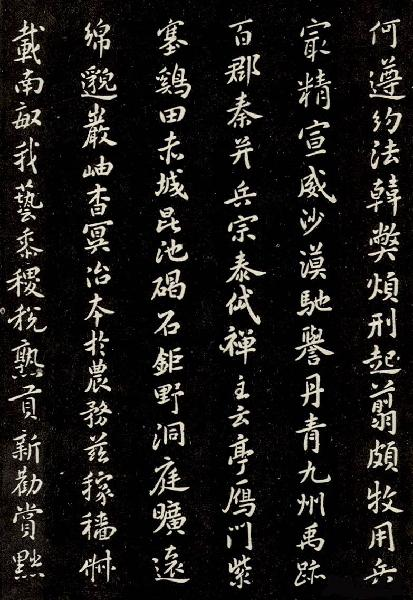 何遵約法韓弊煩刑起翦頗牧用兵
㝡精宣威沙漠馳譽丹青九州禹跡
百郡秦并岳宗泰岱禪主云亭鴈門紫
塞鷄田赤城昆池碣石鉅野洞庭曠遠
綿邈巖岫杳冥治本於農務茲稼穡俶
載南畝我藝黍稷稅熟貢新勸賞黜